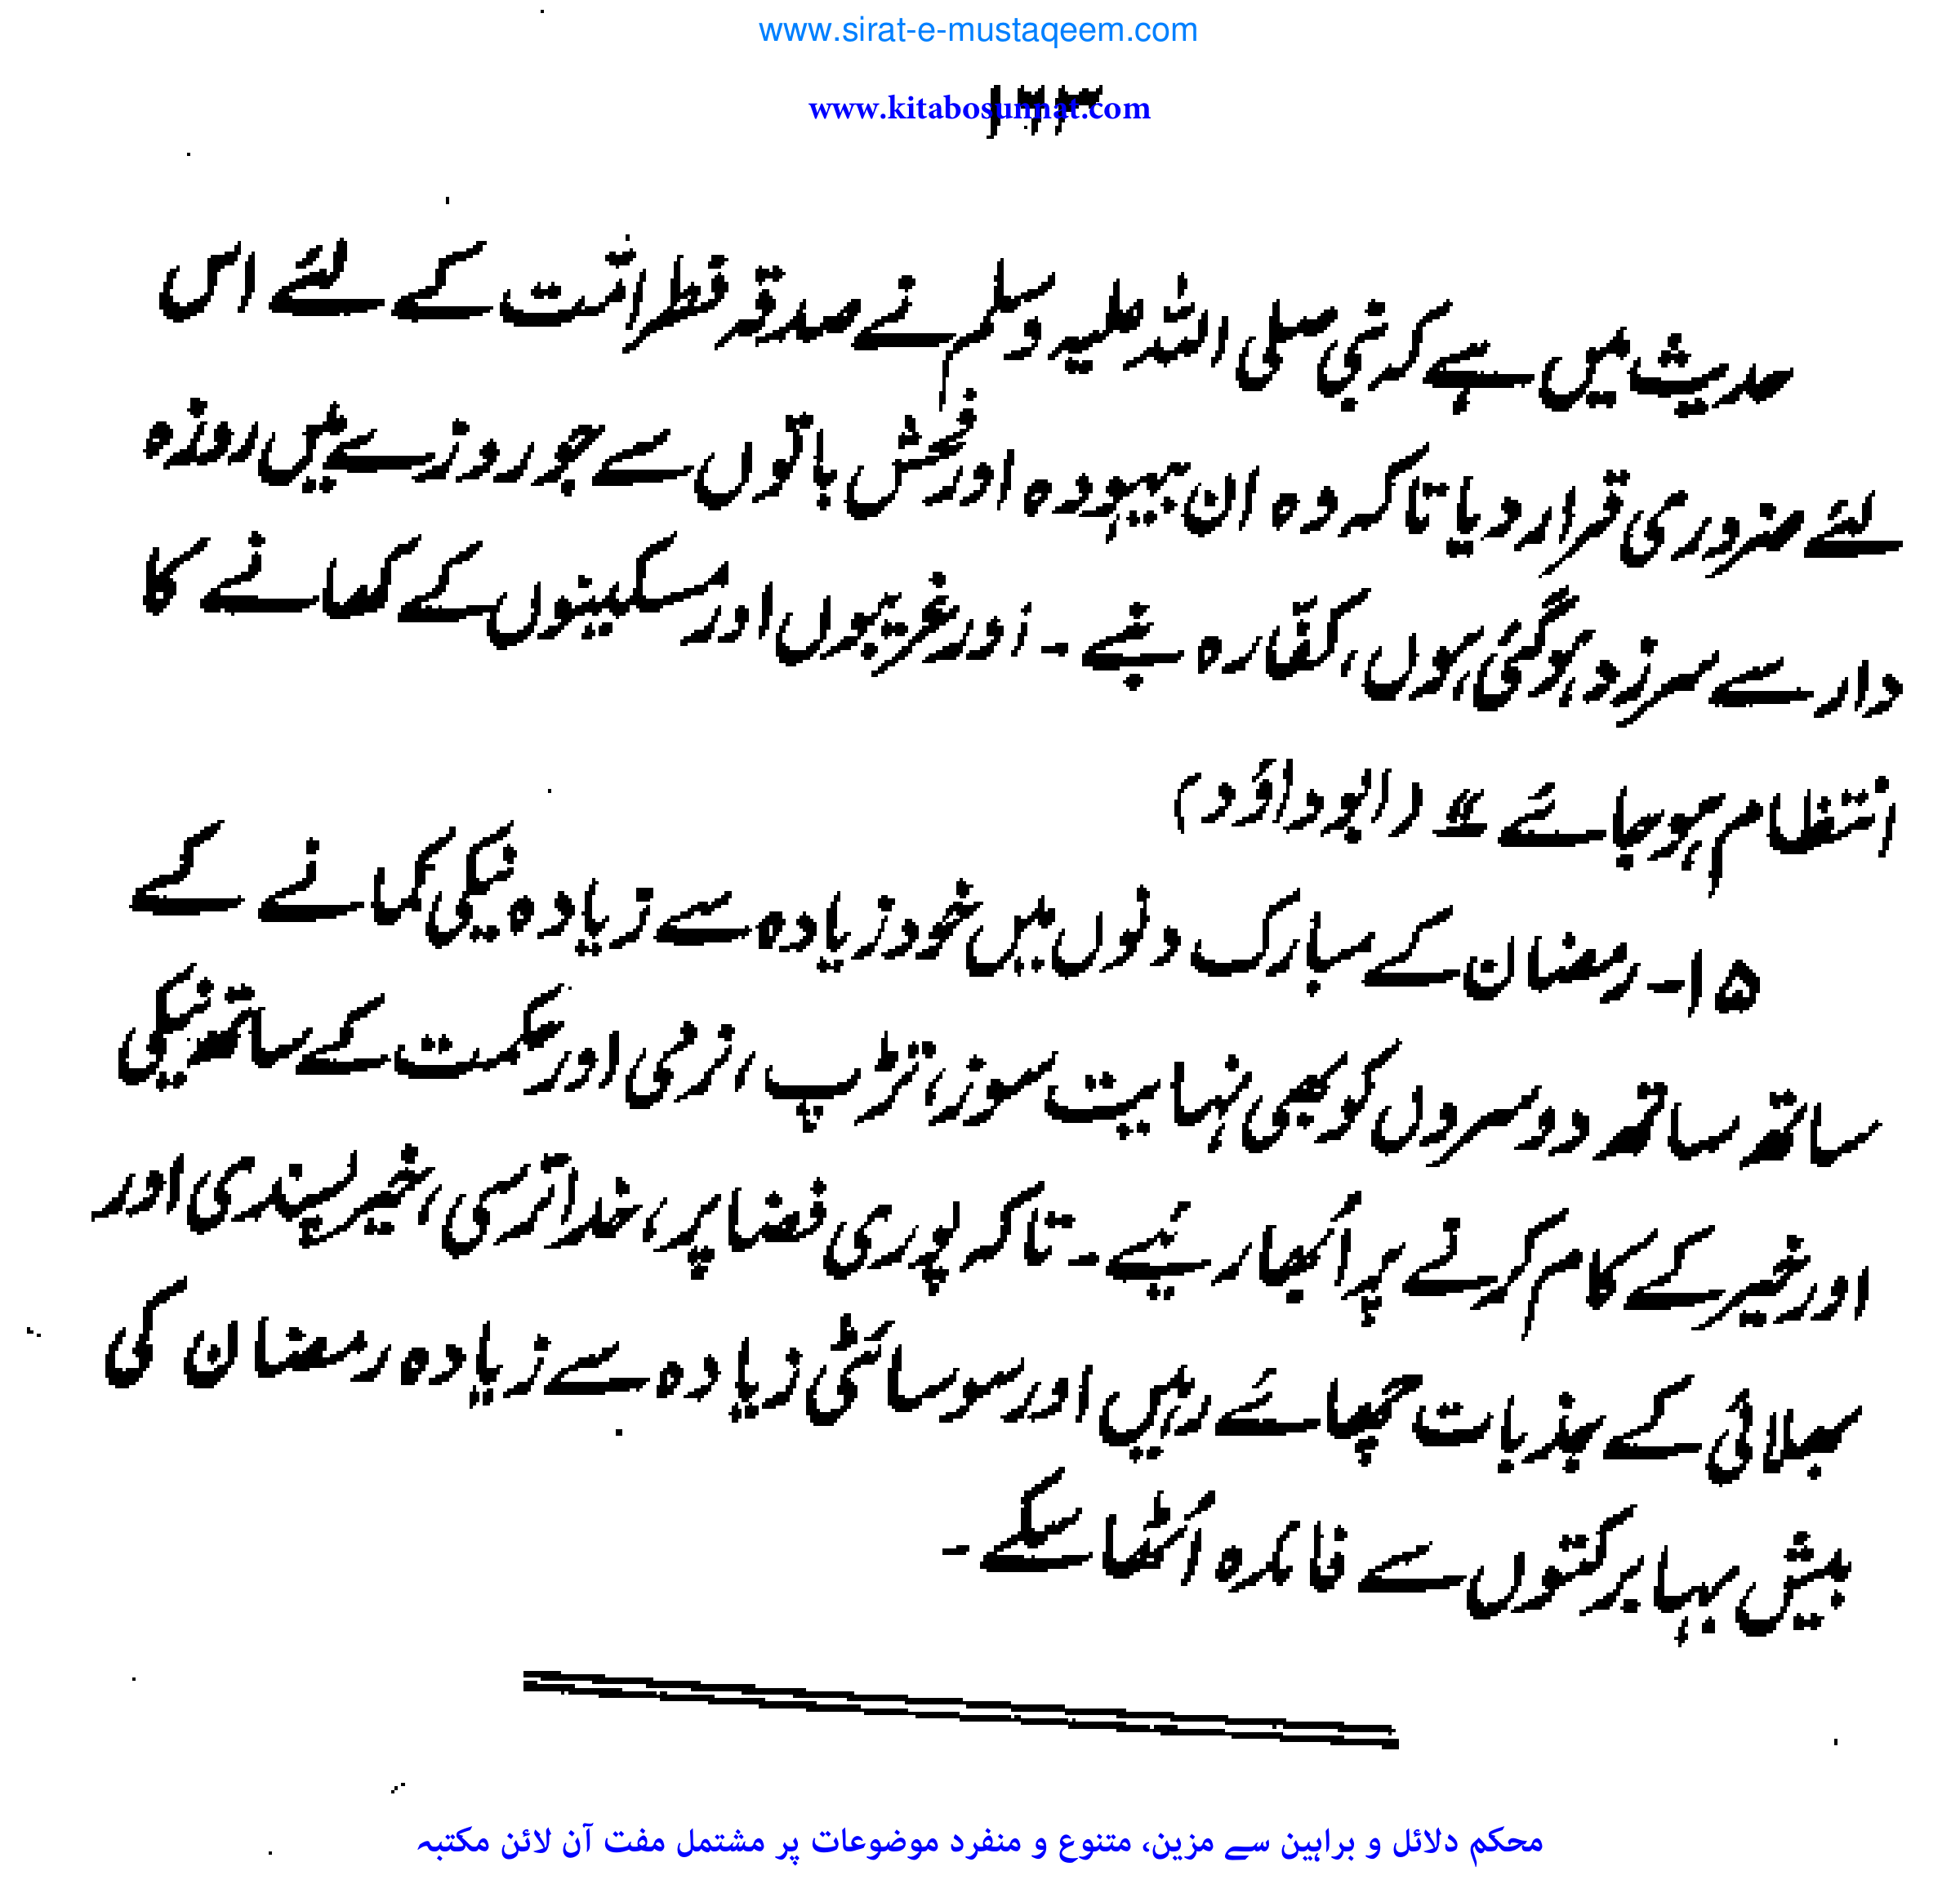 www.sirat-e-mustaqeem.com
www.kitabosunnat.com
حدیث میں ہے کہ نبی صلی اللہ علیہ وسلم نے صدقہ فطر امّت کے لئے اس
لئے ضروری قرار دیا تاکہ وہ ان بیہودہ اور فحش باتوں سے جو روزے میں روزہ
دار سے سرزد ہوگئی ہوں، کفّارہ بنے ۔ اور غریبوں اور مسکینوں کے کھانے کا
انتظام ہوجائے ؏ (ابوداؤد)
۱۵۔ رمضان کے مبارک دنوں میں خود زیادہ سے زیادہ نیکی کمانے کے
ساتھ ساتھ دوسروں کو بھی نہایت سوز، تڑپ، نرمی اور حکمت کے ساتھ نیکی
اور خیر کے کام کرنے پر اُبھاریئے ۔ تاکہ پوری فضا پر، خدا ترسی، خیر پسندی اور
بھلائی کے جذبات چھائے رہیں اور سوسائٹی زیادہ سے زیادہ رمضان کی
بیش بہا برکتوں سے فائدہ اُٹھا سکے ۔
محکم دلائل و براہین سے مزین، متنوع و منفرد موضوعات پر مشتمل مفت آن لائن مکتبہ